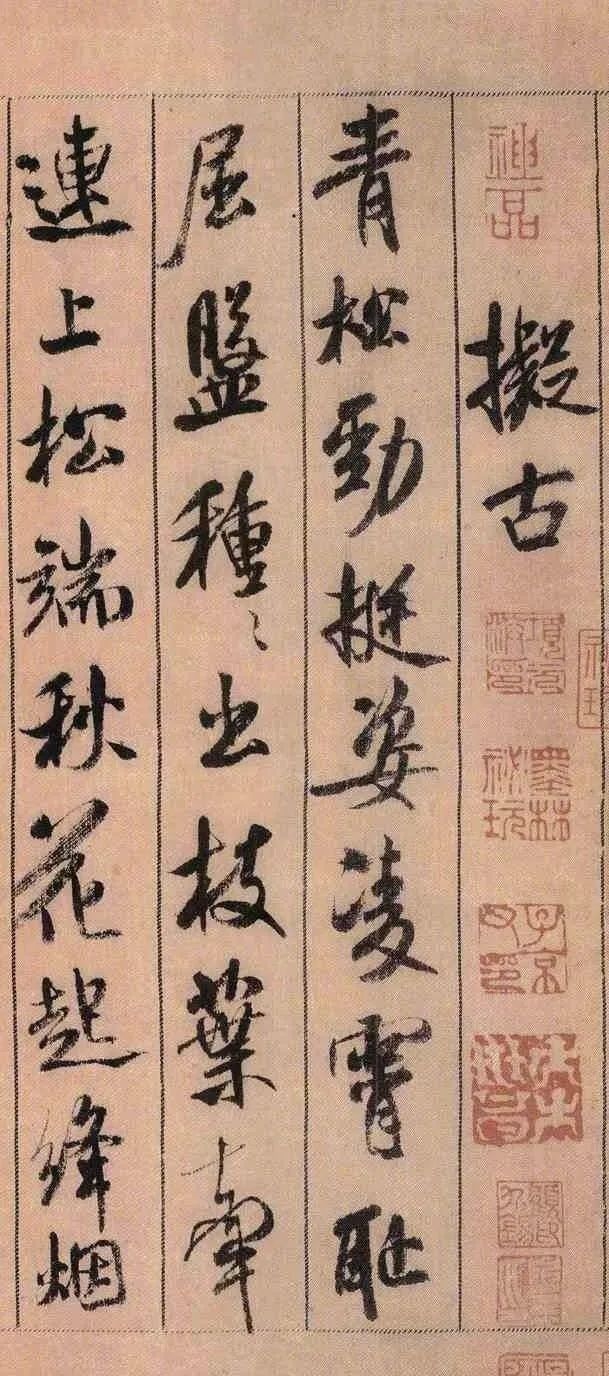 擬古
青松勁挺姿凌霄耻
屈盤種〻出枝葉牽
連上松端秋花起絳烟